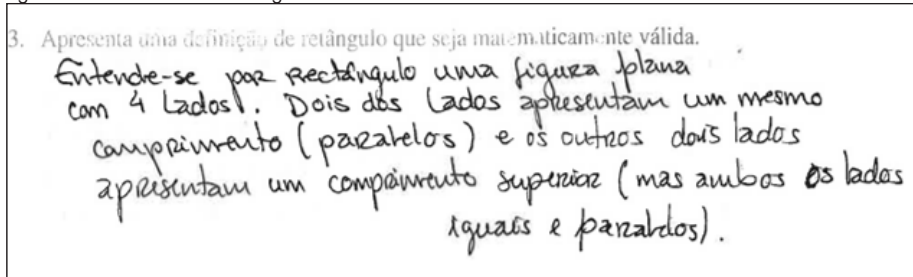 3. Apresenta uma definição de retângulo que seja matematicamente válida.
Entende-se por Rectângulo uma figura plana
com 4 Lados. Dois dos Lados apresentam um mesmo
comprimento (paralelos) e os outros dois lados
apresentam um comprimento superior (mas ambos os lados
iguais e paralelos).